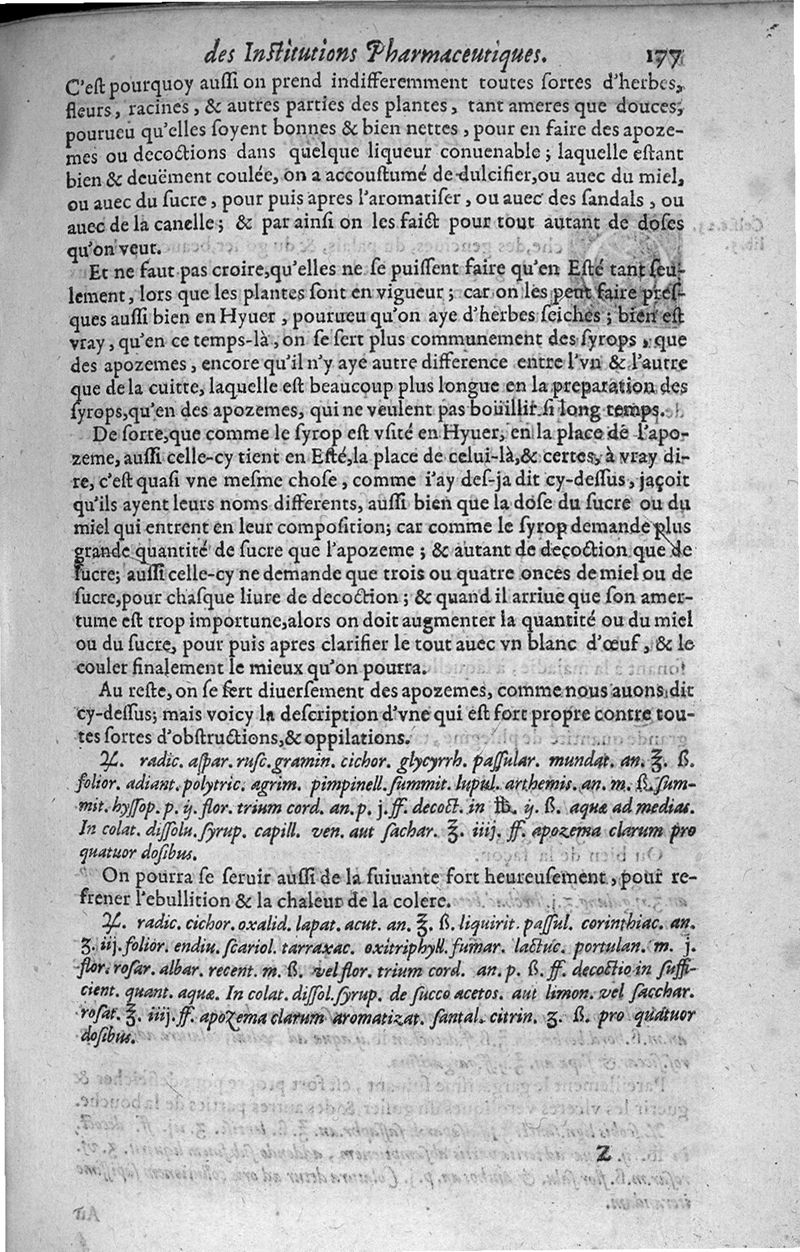 des Institutions Pharmaceutiques. 177
C'est pourquoy aussi on prend indifferemment toutes sortes d'herbes,
fleurs, racines, & autres parties des plantes, tant ameres que douces,
pourueu qu'elles soyent bonnes & bien nettes, pour en faire des apoze-
mes ou decoctions dans quelque liqueur conuenable; laquelle estant
bien & deuëment coulée, on a accoustumé de dulcifier, ou auec du miel,
ou auec du sucre, pour puis apres l'aromatiser, ou auec des sandals, ou
auec de la canelle; & par ainsi on les faict pour tout autant de doses
qu'on veut.
Et ne faut pas croire, qu'elles ne se puissent faire qu'en Esté tant seu-
lement, lors que les plantes sont en vigueur; car on les peut faire pres-
ques aussi bien en Hyuer, pourueu qu'on aye d'herbes seiches; bien est
vray, qu'en ce temps-là, on se sert plus communement des syrops, que
des apozemes, encore qu'il n'y aye autre difference entre l'vn & l'autre
que de la cuitte, laquelle est beaucoup plus longue en la preparation des
syrops, qu'en des apozemes, qui ne veulent pas boüillir si long temps.
De sorte, que comme le syrop est vsité en Hyuer, en la place de l'apo-
zeme, aussi celle-cy tient en Esté, la place de celui-là, & certes, à vray di-
re, c'est quasi vne mesme chose, comme i'ay des-ja dit cy-dessus, jaçoit
qu'ils ayent leurs noms differents, aussi bien que la dose du sucre ou du
miel qui entrent en leur composition; car comme le syrop demande plus
grande quantité de sucre que l'apozeme; & autant de decoction que de
sucre; aussi celle-cy ne demande que trois ou quatre onces de miel ou de
sucre, pour chasque liure de decoction; & quand il arriue que son amer-
tume est trop importune, alors on doit augmenter la quantité ou du miel
ou du sucre, pour puis apres clarifier le tout auec vn blanc d'œuf, & le
couler finalement le mieux qu'on pourra.
Au reste, on se sert diuersement des apozemes, comme nous auons dit
cy-dessus; mais voicy la description d'vne qui est fort propre contre tou-
tes sortes d'obstructions, & oppilations.
℞. radic. aspar. rusc. gramin. cichor. glycyrrh. passular. mundat. an. ℥. ß.
folior. adiant. polytric. agrim. pimpinell. summit. lupul. arthemis. an. m. ß. sum-
mit. hyssop. p. ij. flor. trium cord. an. p. j. ff. decoct. in ℔. ij. ß. aquæ ad medias.
In colat. dissolu. syrup. capill. ven. aut sachar. ℥. iiij. ff. apozema clarum pro
quatuor dosibus.
On pourra se seruir aussi de la suiuante fort heureusement, pour re-
frener l'ebullition & la chaleur de la colere.
℞. radic. cichor. oxalid. lapat. acut. an. ℥. ß. liquirit. passul. corinthiac. an.
ʒ. iij. folior. endiu. scariol. tarraxac. oxitriphyll. fumar. lactuc. portulan. m. j.
flor. rosar. albar. recent. m. ß. vel flor. trium cord. an. p. ß. ff. decoctio in suffi-
cient. quant. aquæ. In colat. dissol. syrup. de succo acetos. aut limon. vel sacchar.
rosat. ℥. iiij. ff. apozema clarum aromatizat. santal. citrin. ʒ. ß. pro quatuor
dosibus.
Z